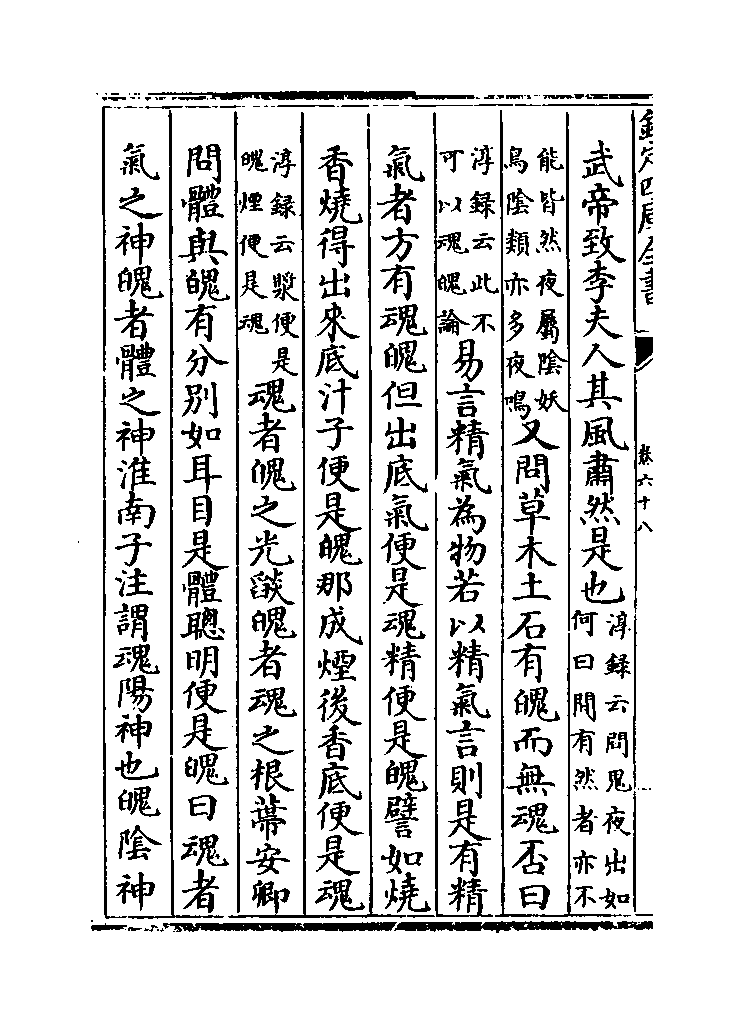 欽定四庫全書
卷六十八
武帝致李夫人其風肅然是也淳録云問鬼夜出如何曰間有然者亦不
能皆然夜屬陰妖鳥陰類亦多夜鳴又問草木土石有魄而無魂否曰
淳録云此不可以魂魄論易言精氣為物若以精氣言則是有精
氣者方有魂魄但出底氣便是魂精便是魄譬如燒
香燒得出來底汁子便是魄那成煙後香底便是魂
淳録云漿便是魄煙便是魂魂者魄之光燄魄者魂之根蔕安卿
問體與魄有分别如耳目是體聰明便是魄曰魂者
氣之神魄者體之神淮南子注謂魂陽神也魄陰神